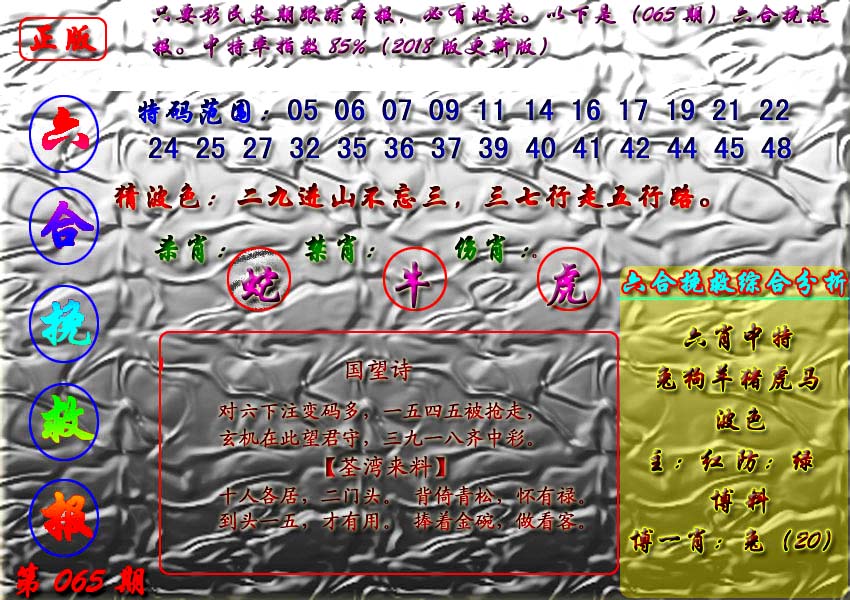 正版
只要彩民长期跟踪本报，必有收获。以下是（065期）六合挽救
报。中特率指数85%（2018版更新版）
六合挽救报
第065期
特码范围：05 06 07 09 11 14 16 17 19 21 22
24 25 27 32 35 36 37 39 40 41 42 44 45 48
猜波色：二九进山不忘三，三七行走五行路。
杀肖：蛇 禁肖：牛 伤肖：虎
国望诗
对六下注变码多，一五四五被抢走，
玄机在此望君守，三九一八齐中彩。
【荃湾来料】
十人各居，二门头。 背倚青松，怀有禄。
到头一五，才有用。 捧着金碗，做看客。
六合挽救综合分析
六肖中特
兔狗羊猪虎马
波色
主：红防：绿
博料
博一肖：兔（20）